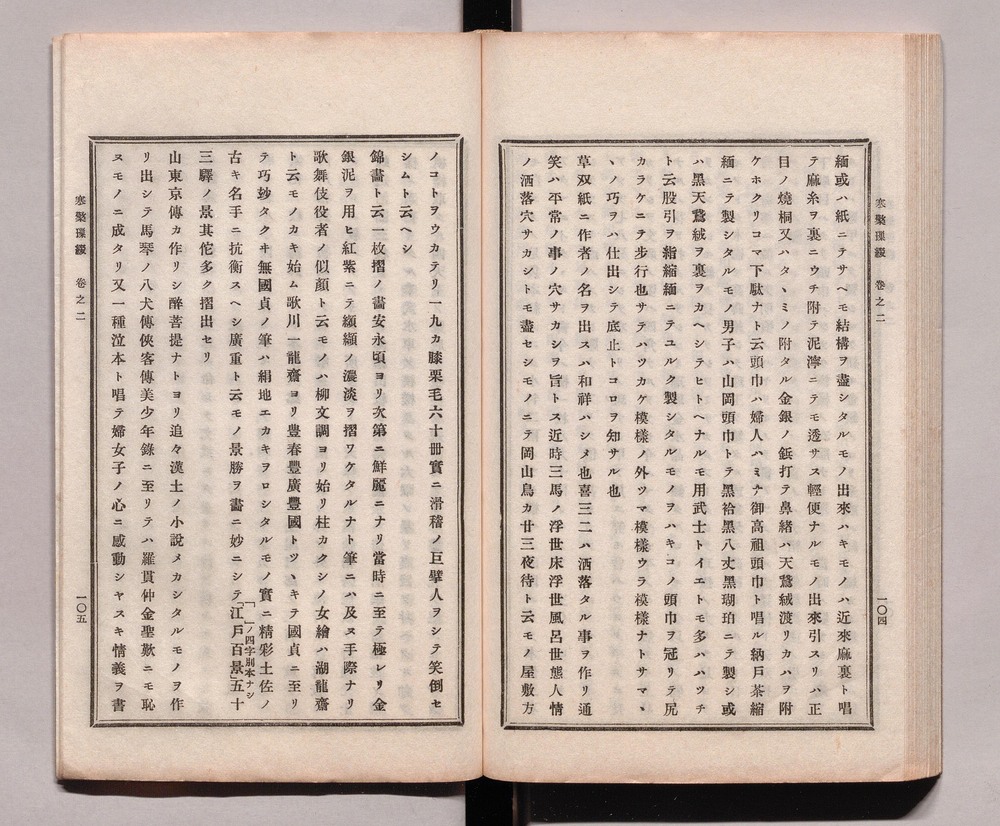 寒檠璅綴　卷之二
一〇四
緬或ハ紙ニテサヘモ結構ヲ盡シタルモノ出來ハキモノハ近來麻裏ト唱
テ麻糸ヲ裏ニウチ附テ泥濘ニテモ透サス輕便ナルモノ出來引スリハ正
目ノ燒桐又ハタヽミノ附タル金銀ノ鋲打テ鼻緒ハ天鵞絨渡リカハヲ附
ケホクリコマ下駄ナト云頭巾ハ婦人ハミナ御高祖頭巾ト唱ル納戸茶縮
緬ニテ製シタルモノ男子ハ山岡頭巾トテ黑袷黑八丈黑瑚珀ニテ製シ或
ハ黑天鵞絨ヲ裏ヲカヘシテヒトヘナルモ用武士トイエトモ多ハハツチ
ト云股引ヲ絹縮緬ニテユルク製シタルモノヲハキコノ頭巾ヲ冠リテ尻
カラケニテ步行也サテハツカケ模樣ノ外ツマ模樣ウラ模樣ナトサマヽ
ヽノ巧ヲハ仕出シテ底止トコロヲ知サル也
草双紙ニ作者ノ名ヲ出スハ和祥ハシメ也喜三二ハ洒落タル事ヲ作リ通
笑ハ平常ノ事ノ穴サカシヲ旨トス近時三馬ノ浮世床浮世風呂世態人情
ノ洒落穴サカシトモ盡セシモノニテ岡山鳥カ廿三夜待ト云モノ屋敷方
ノコトヲウカテリ一九カ膝栗毛六十冊實ニ滑稽ノ巨擘人ヲシテ笑倒セ
シムト云ヘシ
錦畵ト云一枚摺ノ畵安永頃ヨリ次第ニ鮮麗ニナリ當時ニ至テ極レリ金
銀泥ヲ用ヒ紅紫ニテ纐纈ノ濃淡ヲ摺ワケタルナト筆ニハ及ヌ手際ナリ
歌舞伎役者ノ似顔ト云モノハ柳文調ヨリ始リ柱カクシノ女繪ハ湖龍齋
ト云モノカキ始ム歌川一龍齋ヨリ豊春豐廣豐國トツヽキテ國貞ニ至リ
テ巧玅タクヰ無國貞ノ筆ハ絹地エカキヲロシタルモノ實ニ精彩土佐ノ
古キ名手ニ抗衡スヘシ廣重ト云モノ景勝ヲ畵ニ妙ニシテ「江戸百景」五十
「　」ノ四字別本ナシ
三驛ノ景其佗多ク摺出セリ
山東京傳カ作リシ醉菩提ナトヨリ追々漢土ノ小說メカシタルモノヲ作
リ出シテ馬琴ノ八犬傳俠客傳美少年錄ニ至リテハ羅貫仲金聖歎ニモ恥
ヌモノニ成タリ又一種泣本ト唱テ婦女子ノ心ニ感動シヤスキ情義ヲ書
寒檠璅綴　卷之二
一〇五